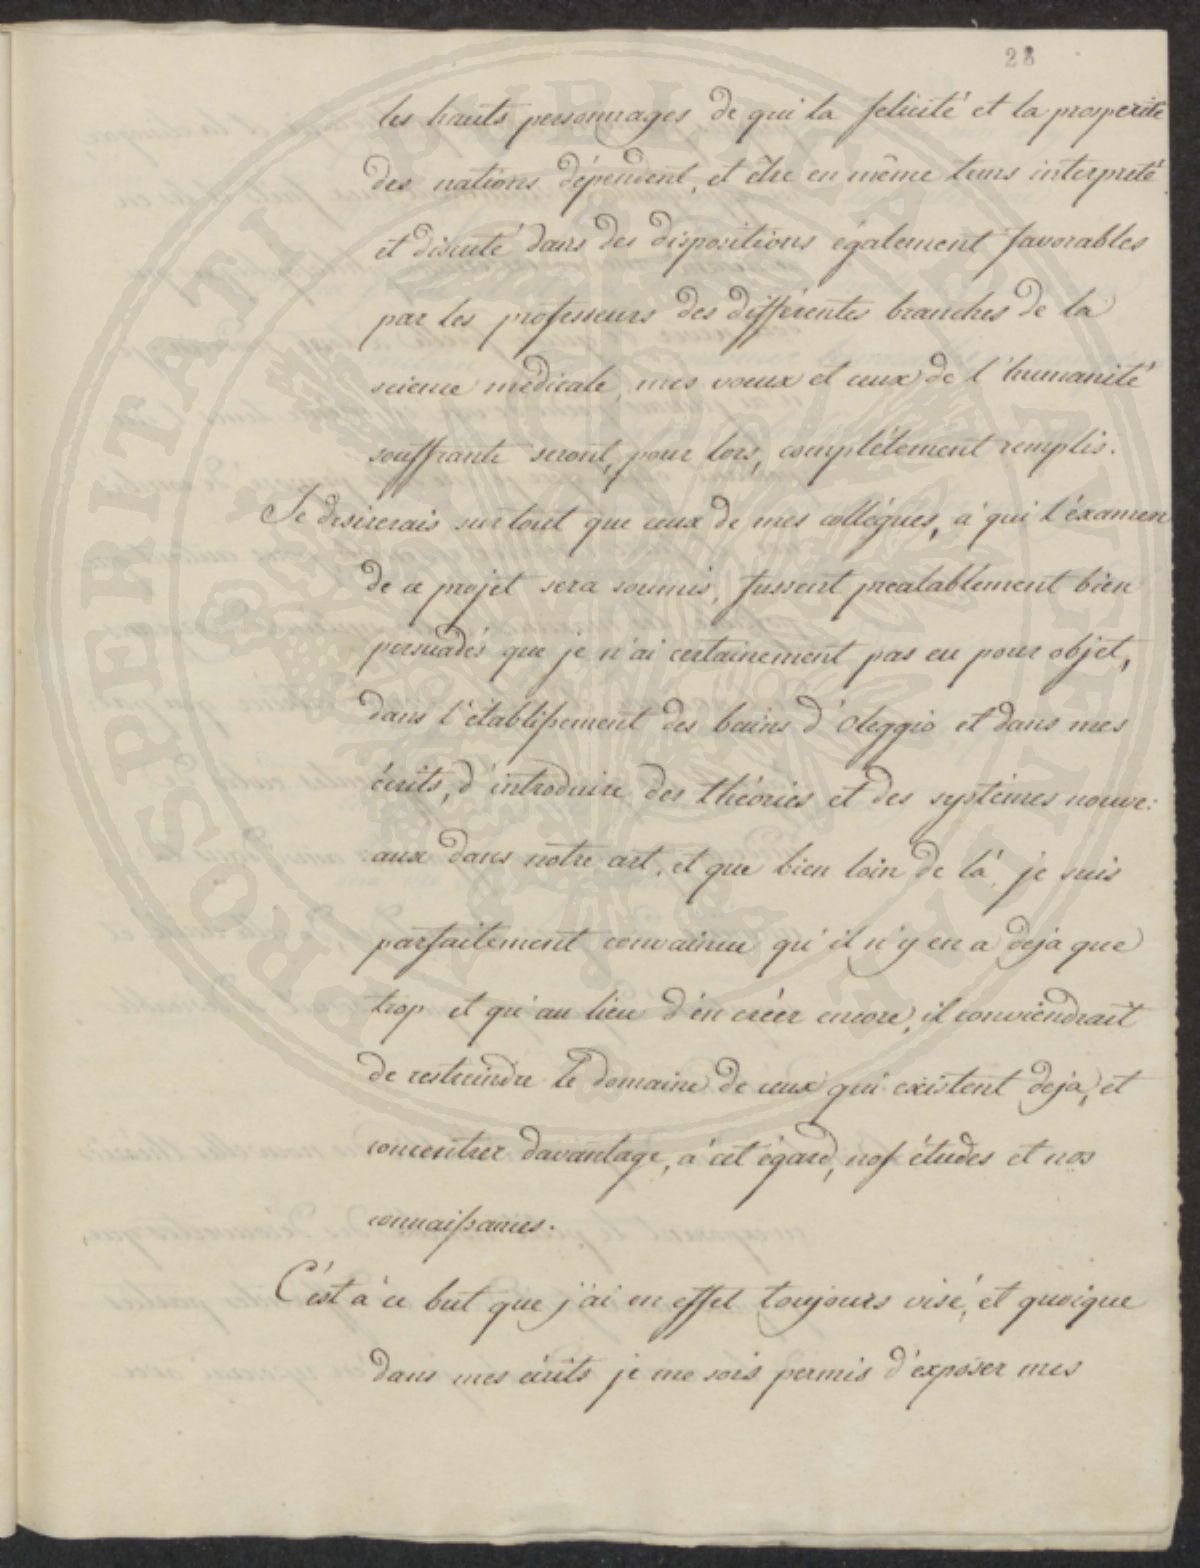 28
les hauts personnages de qui la felicité et la prosperité
des nations dépendent, et être en même tems interpreté
et discuté dans des dispositions également favorables
par les professeurs des différentes branches de la
science médicale, mes vœux et ceux de l'humanité
souffrante seront, pour lors, complétement remplis.
Je desirerais surtout que ceux de mes collégues, à qui l'éxamen
de ce projet sera soumis, fussent préalablement bien
persuadés que je n'ai certainement pas eu pour objet,
dans l'établissement des bains d'Oleggio et dans mes
écrits, d'introduire des théories et des systémes nouve:
aux dans notre art, et que bien loin de là, je suis
parfaitement convaincu qu'il n'y en a deja que
trop et qu'au lieu d'en créer encore, il conviendrait
de restreindre le domaine de ceux qui existent deja, et
concentrer davantage, à cet égard, nos études et nos
connaissances.
C'est à ce but que j'ai en effet toujours visé, et quoique
dans mes écrits je me sois permis d'exposer mes
PROSPERITATI PUBLICAE AUGENDAE